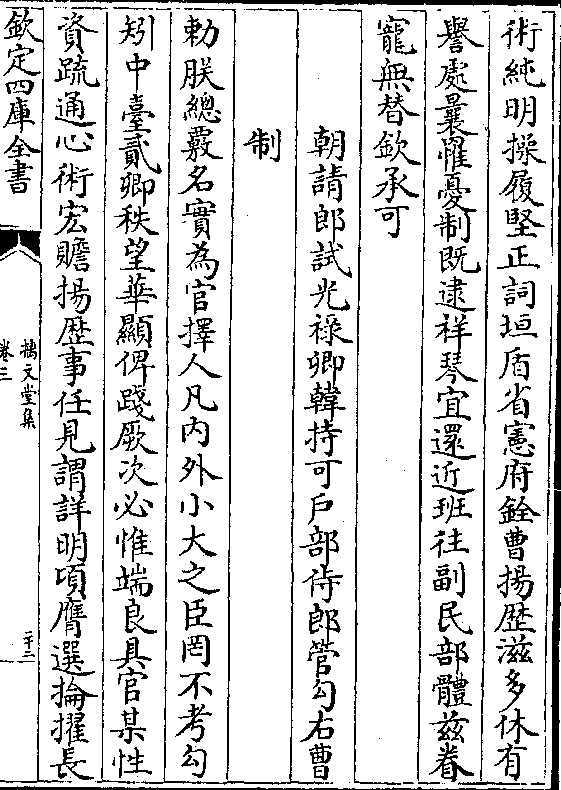 術純明操履堅正詞垣盾省憲府銓曹揚歴滋多休有
譽處曩罹憂制既逮祥琴宜還近班往副民部體兹眷
寵無替欽承可
朝請郎試光祿卿韓持可户部侍郎管勾右曹
制
勅朕總覈名實為官擇人凡内外小大之臣罔不考勾
矧中臺貳卿秩望華顯俾踐厥次必惟端良具官某性
資疏通心術宏贍揚歴事任見謂詳明頃膺選掄擢長
欽定四庫全書
摛文堂集
卷三
二十二